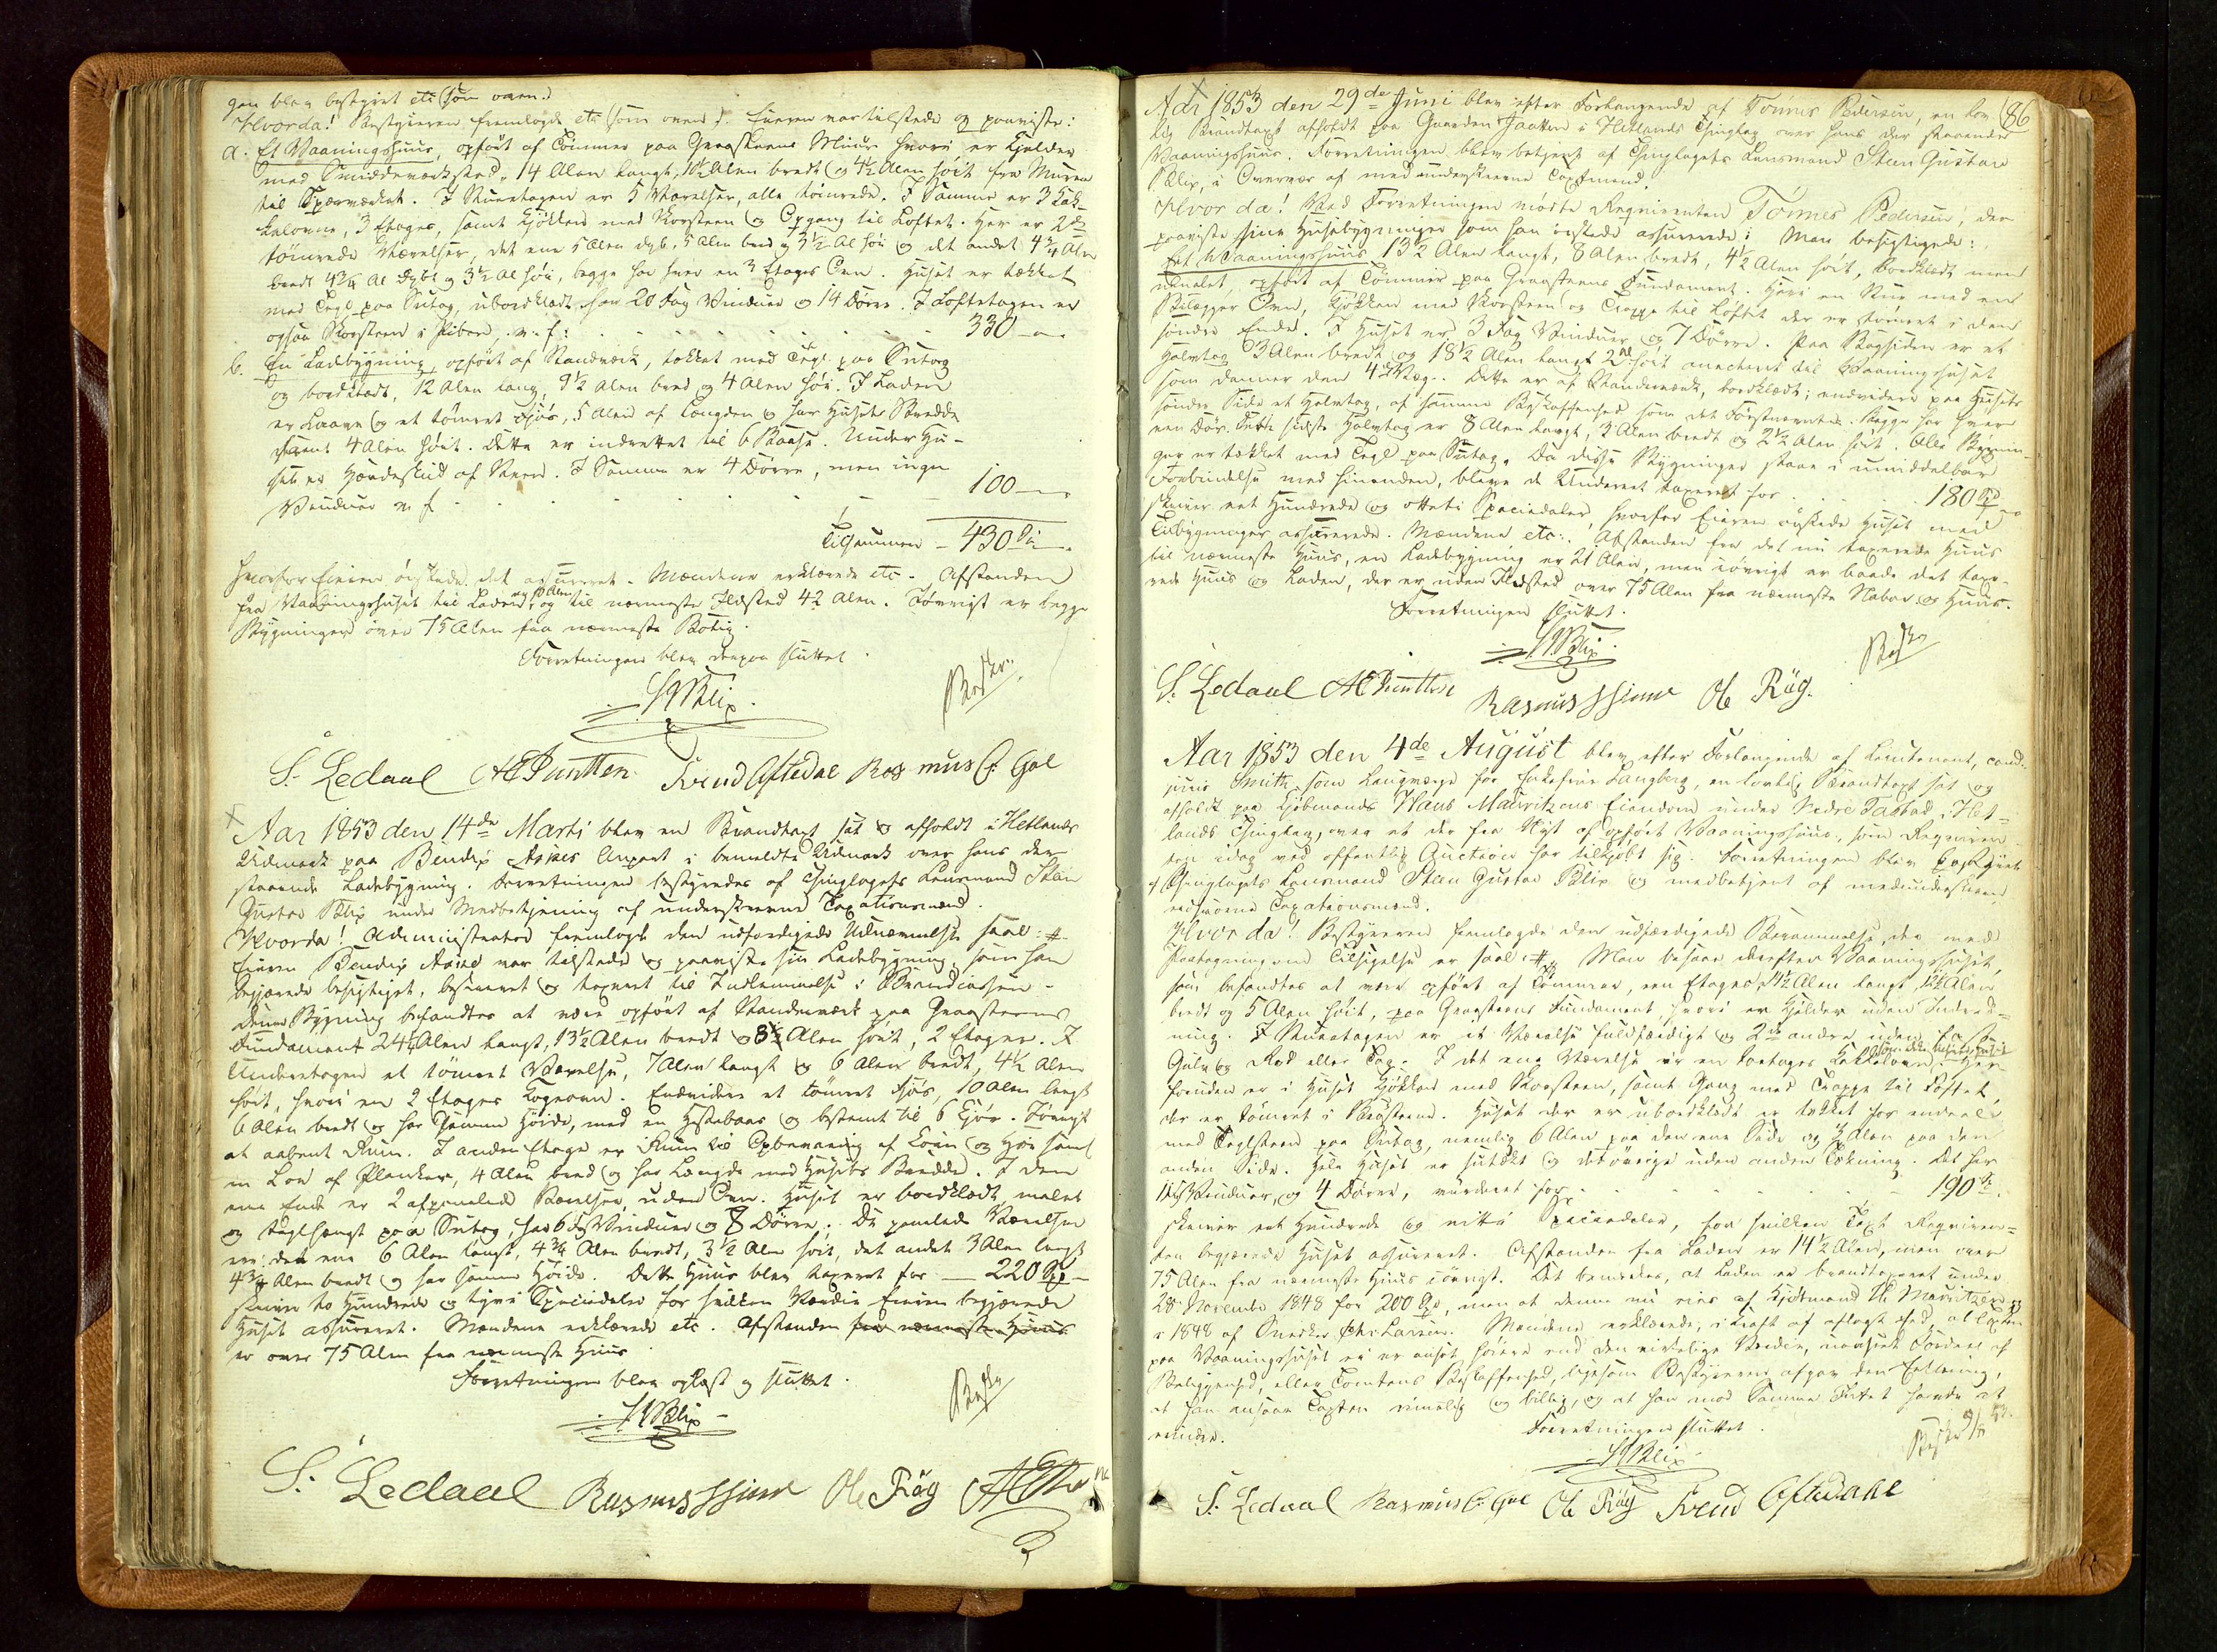 gen blev bestyret etc (som oven.)
Hvorda! Bestyreren fremlagde etc (som oven). Eieren var tilstede og paaviste:
a. Et Vaaningshuus, opført af Tømmer paa Graasteens Muur hvori er Kjelder
med Smiddeværksted, 14 Alen langt, 10½ Alen bredt og 4½ Alen høit fra Muren
til Sperreværket. I Stueetagen er 5 Værelser, alle tømrede. I Samme er 3 Kak-
kelovne, 3 Etages, samt Kjøkken med Skorsteen og Opgang til Loftet. Her er 2de
tømrede Værelser, det ene 5 Alen dyb, 5 Alen bred og 3½ Al høi og det andet 4¾ Alen
bredt 4¾ Al dybt og 3½ Al høi, begge har hver en 3 Etages Ovn. Huset er tækket
med Tegl paa Sutag, ubordklædt, har 20 Fag Vinduer og 14 Dørre. I Loftetagen er
ogsaa Skorsteen i Piben, v. f: 330 -
b. En Ladebygning opført af Standværk, tækket med Tegl paa Sutag
og bordklædt, 12 Alen lang, 9½ Alen bred og 4 Alen høi. I Laden
er Laave og et tømret Fjøs, 5 Alen af Længden og har Husets Bredde
samt 4 Alen høit. Dette er indrettet til 6 Baase. Under Hu-
set er Gjødeskud af Steen. I Samme er 4 Dørre, men ingen
Vinduer v. f 100 -
Tilsammen - 430 Sp
hvorfor Eieren ønskede det assureret. Mændene erklærede etc. Afstanden
fra Vaaningshuset til Laden, og til nærmeste Ildsted 42 Alen. Iøvrigt er begge
Bygninger over 75 Alen fra nærmeste Bolig.
Forretningen blev derpaa sluttet.
S G Blix
S. Ledaal Svend Aftedal Rasmus C. Goe
Aar 1853 den 14de Marti blev en Brandtaxt sat og afholdt i Hetlands
Udmark paa Bendix Aases Anpart i bemeldte Udmark over hans der
staaende Ladebygning. Forretningen bestyredes af Thinglagets Lensmand Sten
Gustav Blix under Medbetjening af underskrevne Taxationsmænd.
Hvorda! Administrator fremlagde den udfærdigede Udnævnelse saal: #
Eieren Bendix Aase var tilstede og paaviste sin Ladebygning, som han
begjærede besigtiget, beskrevet og taxeret til Indlemmelse i Brandcassen -
Denne Bygning befandtes at være opført af Standværk paa Graasteens
Fundament 24½ Alen langt, 13½ Alen bredt og 8½ Alen høit, 2 Etager. I
Underetagen et tømret Værelse, 7 Alen langt og 6 Alen bredt, 4½ Alen
høit, hvori en 2 Etages Kogeovn. Endvidere et tømret Fjøs, 10 Alen langt
6 Alen bredt og har samme Høide, med en Hestebaas og bestemt til 6 Kjør. Iøvrigt
et aabent Rum. I anden Etage er Rum til Opbevaring af Korn og Høe samt
en Lov af Planker, 4 Alen bred og har Længde med Husets Bredde. I den
ene Ende er 2 afpanelede Værelser, uden Ovn. Huset er bordklædt, malet
og teglhængt paa Sutag, har 6 Fag Vinduer og 8 Dørre. De panelede Værelser
ere: det ene 6 Alen langt, 4¾ Alen bredt, 3½ Alen høit, det andet 3 Alen langt
4¾ Alen bredt og har samme Høide. Dette Huus blev taxeret for - 220 Sp -
skriver to Hundrede og tyve Speciedaler for hvilken Værdie Eieren begjærede
Huset assureret. Mændene erklærede etc. Afstanden fra nærmeste Huus
er over 75 Alen fra nærmeste Huus
Forretningen blev oplæst og sluttet.
S G Blix
S. Ledaal Rasmus Ole Røg
86
Aar 1853 den 29de Juni blev efter Forlangende af Tønnes Pedersen, en lov-
lig Brandtaxt afholdt paa Gaarden Jaatten i Hetlands Thinglag over hans der staaende
Vaaningshuus. Forretningen blev betjent af Thinglagets Lensmand Sten Gustav
Blix, i Overvær af medunderskrevne Taxtmænd.
Hvor da! Ved Forretningen mødte Requirenten Tønnes Pedersen, der
paaviste sine Husebygninger som han ønskede assurerede; Man besigtigede:
Et Vaaningshuus 13½ Alen langt, 8 Alen bredt, 4½ Alen høit, bordklædt men
umalet, opført af Tømmer paa Graasteens Fundament. Heri en Stue med en
Bilægger Ovn, Kjøkken med Skorsteen og Trappe til Loftet der er tømret i den
søndre Ende. I Huset er 3 Fag Vinduer og 7 Dørre. Paa Bagsiden er et
Halvtag 3 Alen bredt og 18½ Alen langt 2 Al høit anecteret til Vaaningshuset
som danner den 4de Væg. Dette er af Standværk, bordklædt; endvidere paa Husets
søndre Side et Halvtag, af samme Beskaffenhed som det Førstnævnte. Begge har hver
een Dør. Dette sidste Halvtag er 8 Alen langt, 3 Alen bredt og 2½ Alen høit. Alle Bygnin-
ger er tækket med Tegl paa Sutag. Da disse Bygninger staae i umiddelbar
Forbindelse med hinanden, bleve de Underet taxeret for 180 Sp
skriver eet Hundrede og otteti Speciedaler, hvorfor Eieren ønskede Huset med
Tilbygninger assurerede. Mændene etc:. Afstanden fra det nu taxerede Huus
til nærmeste Huus, en Ladebygning er 21 Alen, men iøvrigt er baade det taxe-
rede Huus og Laden, der er uden Ildsted over 75 Alen fra nærmeste Nabos Huus.
Forretningen sluttet.
S G Blix
S. Ledaal Rasmus Ole Røg.
Aar 1853 den 4de August blev efter Forlangende af Lieutenant, cand.
juris Smith som Laugværge for Enkefrue Langberg, en lovlig Brandtaxt sat og
afholdt paa Kjøbmand Hans Mauritzens Eiendom under Nedre Tastad i Het-
lands Thinglag, over et der fra Nyt af opført Vaaningshuus, som Requiren-
ten idag ved offentlig Auction har tilkjøbt sig. Forretningen blev bestyret
af Thinglagets Lensmand Sten Gustav Blix og medbetjent af medunderskrevne
edsvorne Taxationsmænd.
Hvor da! Bestyreren fremlagde den udfærdigede Berammelse, der med
Paategning om Tilsigelse er saal: # Man besaae derefter Vaaningshuset,
som befandtes at være opført af Tømmer, een Etages, 11½ Alen langt, 12½ Alen
bredt og 5 Alen høit, paa Graasteens Fundament, hvori er Kjelder uden Indred-
ning. I Stueetagen er et Værelse fuldfærdigt og 2de andre uden
Gulv og Loft eller Tag. I det ene Værelse er en toetages Kakkelovn. Des-
foruden er i Huset Kjøkken med Skorsteen, samt Gang med Trappe til Loftet,
der er tømret i Brøstene. Huset der er ubordklædt er tækket for endeel
med Teglsteen paa Sutag, nemlig 6 Alen paa den ene Side og 4 Alen paa den
anden Side. Hele Huset er sutækt og det øvrige uden anden Tækning. Det har
11 Fag Vinduer, og 4 Dørre, vurderet for 190 Sp.
skriver eet Hundrede og nitti Speciedaler, for hvilken Taxt Requiren-
ten begjærede Huset assureret. Afstanden fra Laden er 14½ Alen, men over
75 Alen fra nærmeste Huus iøvrigt. Det bemærkes, at Laden er brandtaxeret under
28 November 1848 for 200 Sp, men at denne nu eies af Kjøbmand H. Mauritzen
i 1848 af Snedker Chr. Larsen. Mændene erklærede, i Kraft af aflagt Eed, at Taxten
paa Vaaningshuset ei er ansat høiere end den virkelige Værdie, uanseet Fordeel af
Beliggenhed, eller Tomtens Beskaffenhed, ligesom Bestyreren afgav den Erklæring,
at han ansaae Taxten rimelig og billig, og at han mod Samme Intet havde at
erindre.
Forretningen sluttet.
S G Blix
S. Ledaal Rasmus C. Goe Ole Røg Svend Aftedahl